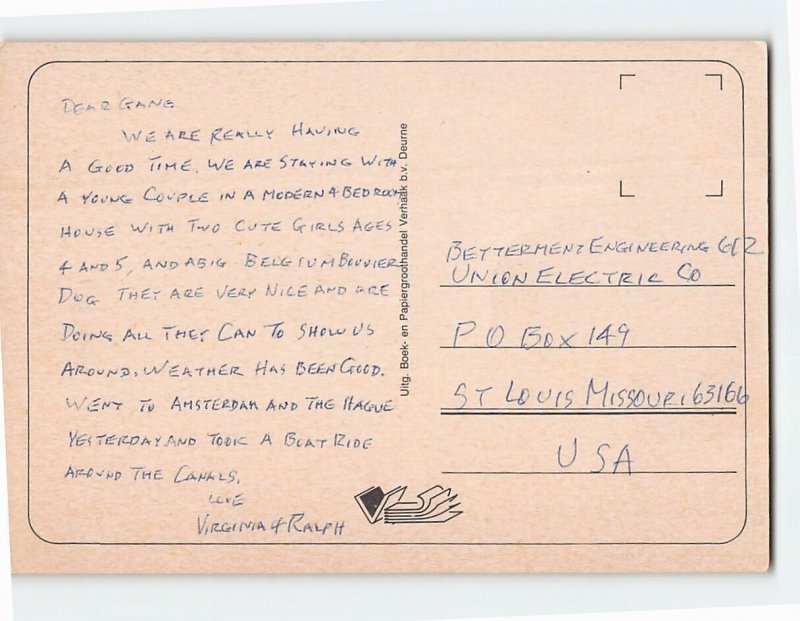 DEAR GANG
WE ARE REALLY HAVING
A GOOD TIME, WE ARE STAYING WITH
A YOUNG COUPLE IN A MODERN 4 BEDROOM
HOUSE WITH TWO CUTE GIRLS AGES
4 AND 5, AND A BIG BELGIUM BOUVIER
DOG THEY ARE VERY NICE AND ARE
DOING ALL THEY CAN TO SHOW US
AROUND. WEATHER HAS BEEN GOOD.
WENT TO AMSTERDAM AND THE HAGUE
YESTERDAY AND TOOK A BOAT RIDE
AROUND THE CANALS.
LOVE
VIRGINIA & RALPH
Uitg. Boek- en Papiergroothandel Verhaak b.v. Deurne
BETTERMENT ENGINEERING
UNION ELECTRIC CO
P O BOX 149
ST LOUIS MISSOURI 63166
USA